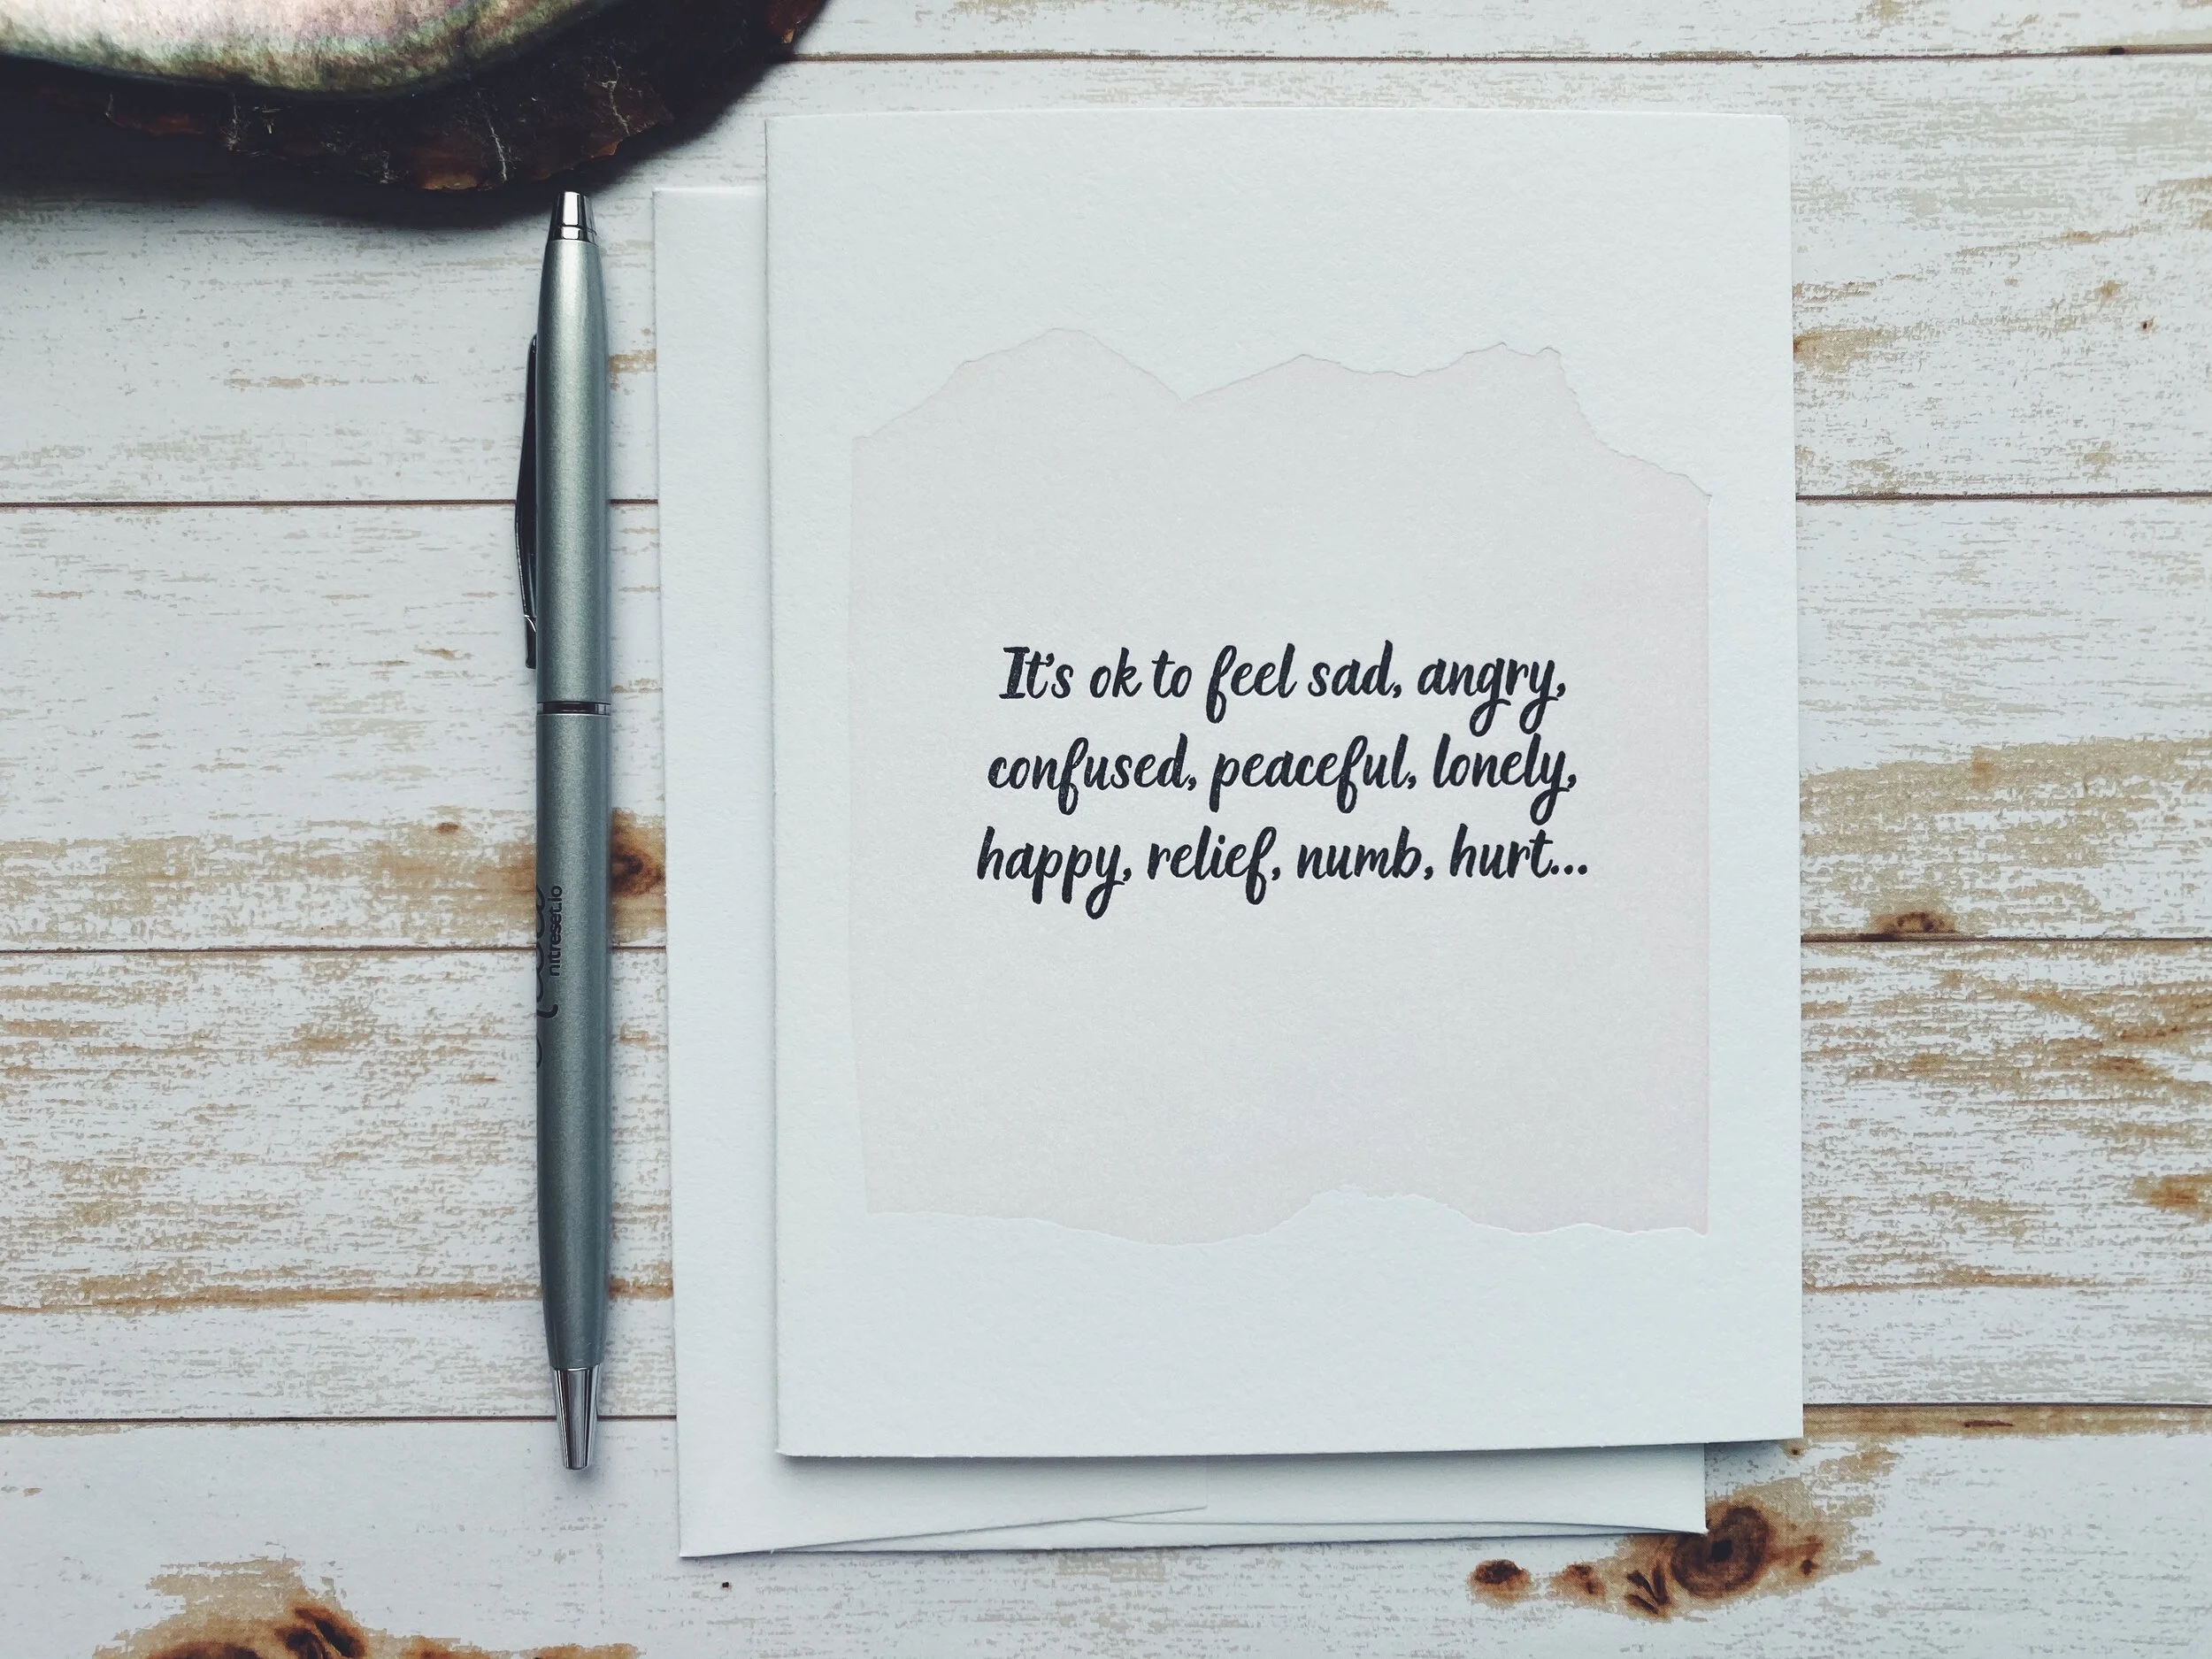 It's ok to feel sad, angry,
confused, peaceful, lonely,
happy, relief, numb, hurt...
nitreset.io